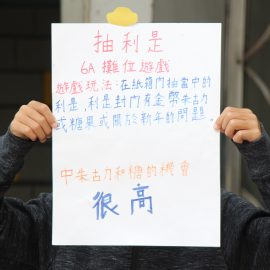 抽利是
6A攤位遊戲
遊戲玩法：在紙箱門抽當中的
利是，利是封門有金幣朱古力
或糖果或關於新年的問題。
中朱古力和糖的機會
很高